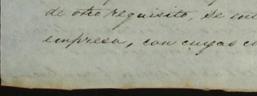 de otro requisito, se
empresa, con cuyas